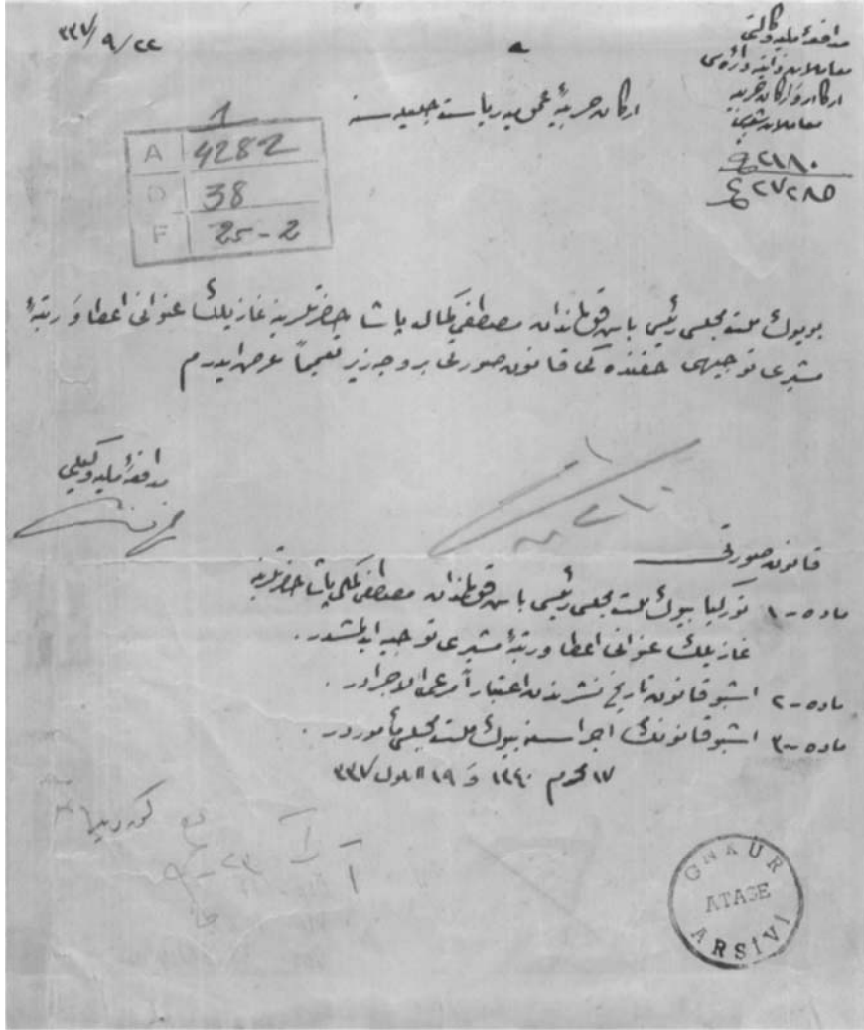 مدافعهٔ ملیه وکالتی
معاملات ذاتیه دائره‌سی
ارکان و ارکان حربیه
معاملات شعبه‌سی
٢١٨٠
٢٧٢٨٥
٣٣٧/٩/٢٢
ارکان حربیهٔ عمومیه ریاست جلیله‌سنه
1
A 4282
D 38
F 25-2
بویوك ملت مجلسی رئیسی باش قوماندان مصطفی کمال پاشا حضرتلرینه غازیلك عنوانی اعطا و رتبهٔ
مشیری توجیهی حقنده کی قانون صورتی بروجه زیر تعمیماً عرض ایدرم
مدافعهٔ ملیه وکیلی
قانون صورتی
ماده -١ تورکیا بیوك ملت مجلسی رئیسی باش قوماندان مصطفی کمال پاشا حضرتلرینه
غازیلك عنوانی اعطا و رتبهٔ مشیری توجیه ایدلمشدر .
ماده -٢ اشبو قانون تاریخ نشرندن اعتباراً مرعی الاجرادر .
ماده -٣ اشبو قانونك اجراسنه بیوك ملت مجلسی مأموردر .
١٧ محرم ١٣٤٠ و ١٩ ایلول ٣٣٧
GNKUR
ATASE
ARŞİVİ